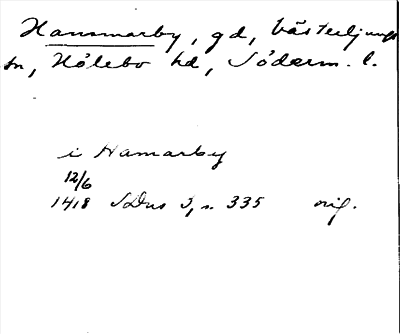 Hansmarby, gd, Västerljungs
sn, Hölebo hd, Söderm. l.
i Hamarby
12/6
1418 SDns 3, s. 335 orig.